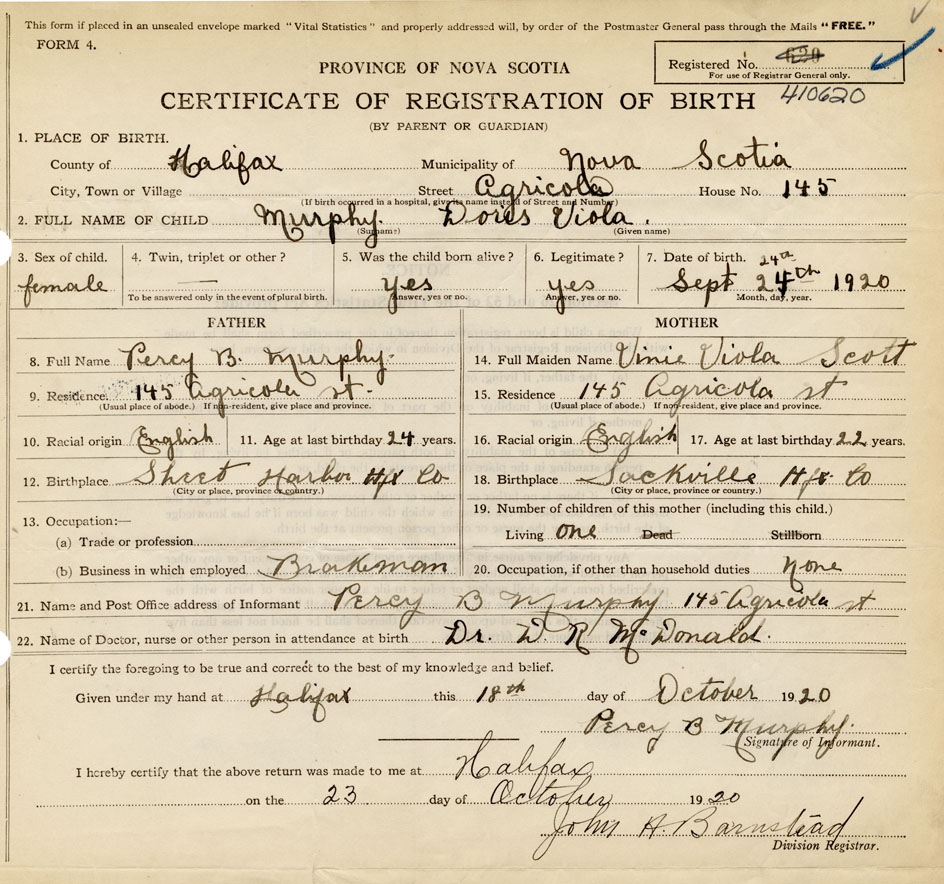 This form if placed in an unsealed envelope marked "Vital Statistics" and properly addressed will, by order of the Postmaster General pass through the Mails "FREE."
FORM 4.
Registered No. 620
For use of Registrar General only.
PROVINCE OF NOVA SCOTIA
CERTIFICATE OF REGISTRATION OF BIRTH 410620
(BY PARENT OR GUARDIAN)
1. PLACE OF BIRTH.
County of Halifax Municipality of Nova Scotia
City, Town or Village Street Agricola House No. 145
(If birth occurred in a hospital, give its name instead of Street and Number)
2. FULL NAME OF CHILD Murphy. Doris Viola.
(Surname) (Given name)
3. Sex of child. 4. Twin, triplet or other? 5. Was the child born alive? 6. Legitimate? 7. Date of birth. 24th
female — yes yes Sept 24th 1920
To be answered only in the event of plural birth. Answer, yes or no. Answer, yes or no. Month, day, year.
FATHER MOTHER
8. Full Name Percy B. Murphy. 14. Full Maiden Name Vinie Viola Scott
9. Residence. 145 Agricola st. 15. Residence 145 Agricola st
(Usual place of abode.) If non-resident, give place and province. (Usual place of abode.) If non-resident, give place and province.
10. Racial origin English 11. Age at last birthday 24 years. 16. Racial origin English 17. Age at last birthday 22 years.
12. Birthplace Sheet Harbor Hfx Co 18. Birthplace Sackville Hfx Co
(City or place, province or country.) (City or place, province or country.)
19. Number of children of this mother (including this child.)
13. Occupation:—
Living one Dead Stillborn
(a) Trade or profession
(b) Business in which employed Brakeman 20. Occupation, if other than household duties None
21. Name and Post Office address of Informant Percy B Murphy 145 Agricola st
22. Name of Doctor, nurse or other person in attendance at birth Dr. W R McDonald.
I certify the foregoing to be true and correct to the best of my knowledge and belief.
Given under my hand at Halifax this 18th day of October 1920
Percy B Murphy.
Signature of Informant.
I hereby certify that the above return was made to me at Halifax
on the 23 day of October 1920
John A. Barnstead
Division Registrar.